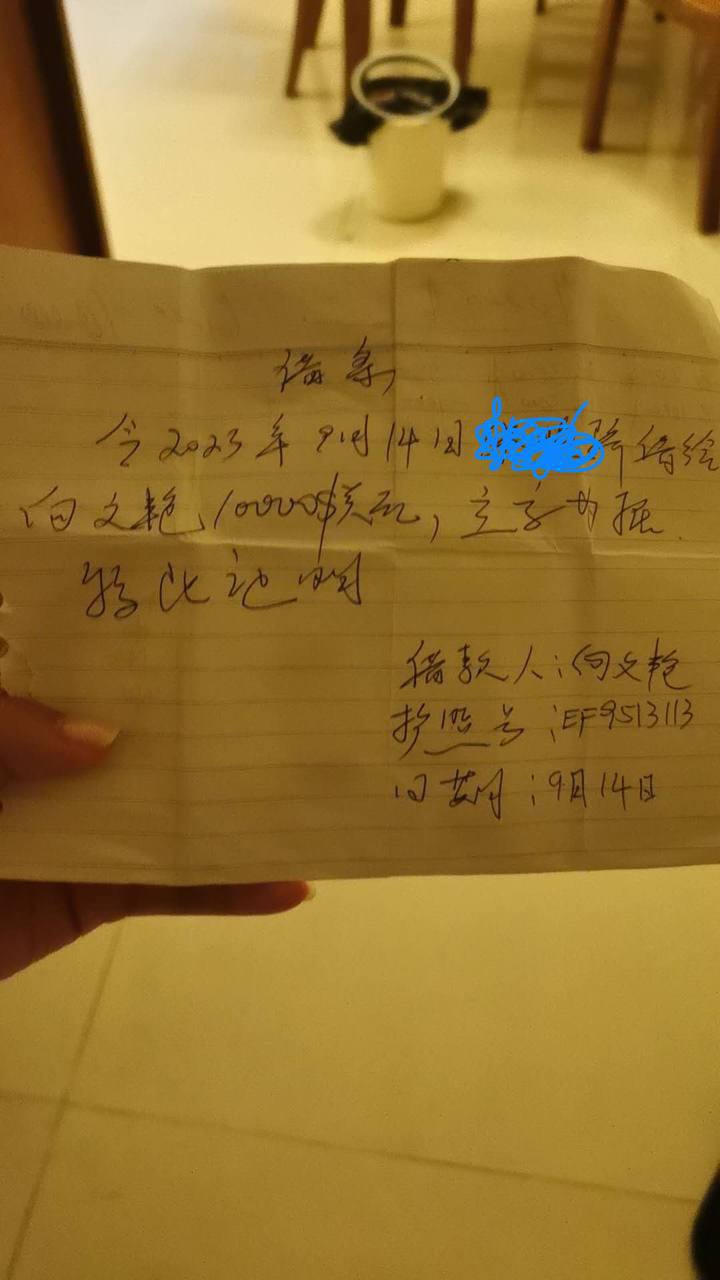 借条
今2023年9月14日 借给
向文艳10000$美元，立字为据.
特此证明
借款人：向文艳
护照号：EF9513113
日期：9月14日